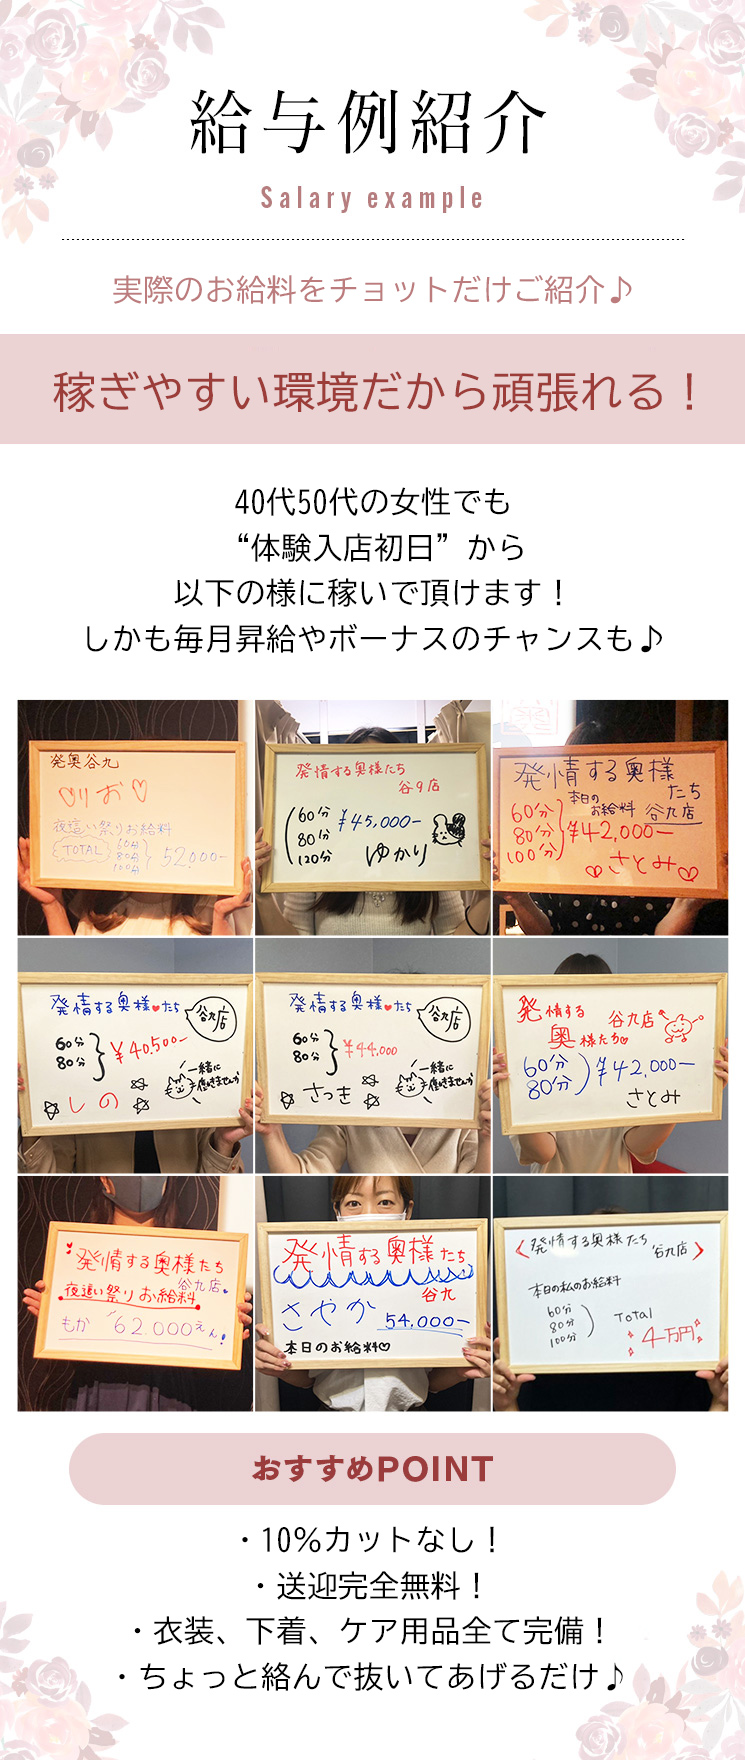 給与例紹介
Salary example
実際のお給料をチョットだけご紹介♪
稼ぎやすい環境だから頑張れる！
40代50代の女性でも
“体験入店初日”から
以下の様に稼いで頂けます！
しかも毎月昇給やボーナスのチャンスも♪
発奥谷九
♡りお♡
夜這い祭りお給料
TOTAL 60分 80分 100分 52,000-
発情する奥様たち
谷9店
60分 ¥45,000-
80分
120分 ゆかり
発情する奥様たち
本日のお給料 谷九店
60分
80分 ¥42,000-
100分
♡さとみ♡
発情する奥様♥たち 谷九店
60分
80分 ¥40,500-
一緒に働きませんか
☆しの☆
発情する奥様♥たち 谷九店
60分
80分 ¥44,000
一緒に働きませんか
☆さつき☆
発情する 谷九店
奥様たち♡
60分
80分 ¥42,000-
さとみ
発情する奥様たち
谷九店
夜這い祭りお給料
もか 62,000えん!
発情する奥様たち
谷九
さやか 54,000-
本日のお給料♡
発情する奥様たち 谷九店
本日の私のお給料
60分
80分
100分
Total
4万円
おすすめPOINT
・10％カットなし！
・送迎完全無料！
・衣装、下着、ケア用品全て完備！
・ちょっと絡んで抜いてあげるだけ♪